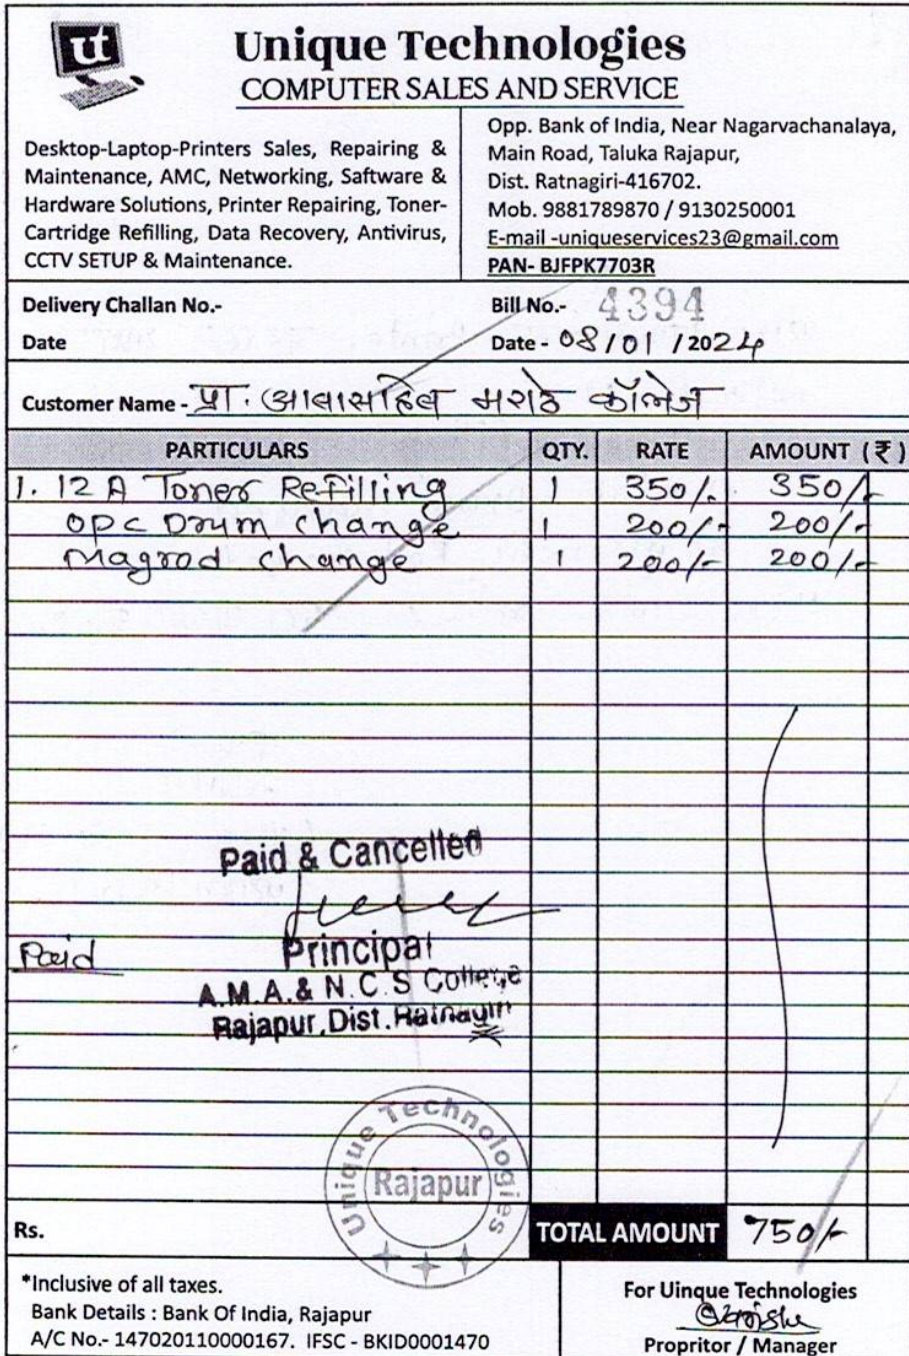 Unique Technologies
COMPUTER SALES AND SERVICE
Desktop-Laptop-Printers Sales, Repairing &
Maintenance, AMC, Networking, Saftware &
Hardware Solutions, Printer Repairing, Toner-
Cartridge Refilling, Data Recovery, Antivirus,
CCTV SETUP & Maintenance.
Opp. Bank of India, Near Nagarvachanalaya,
Main Road, Taluka Rajapur,
Dist. Ratnagiri-416702.
Mob. 9881789870 / 9130250001
E-mail -uniqueservices23@gmail.com
PAN- BJFPK7703R
Delivery Challan No.-
Date
Bill No.- 4394
Date - 08/01/2024
Customer Name - प्रा. आबासाहेब मराठे कॉलेज
PARTICULARS QTY. RATE AMOUNT (₹)
1. 12 A Toner Refilling 1 350/- 350/-
OPC Drum change 1 200/- 200/-
Magrod change 1 200/- 200/-
Paid & Cancelled
Paid
Principal
A.M.A.& N.C.S College
Rajapur, Dist. Ratnagiri
Unique Technologies
Rajapur
Rs. TOTAL AMOUNT 750/-
*Inclusive of all taxes.
Bank Details : Bank Of India, Rajapur
A/C No.- 147020110000167. IFSC - BKID0001470
For Uinque Technologies
Propritor / Manager